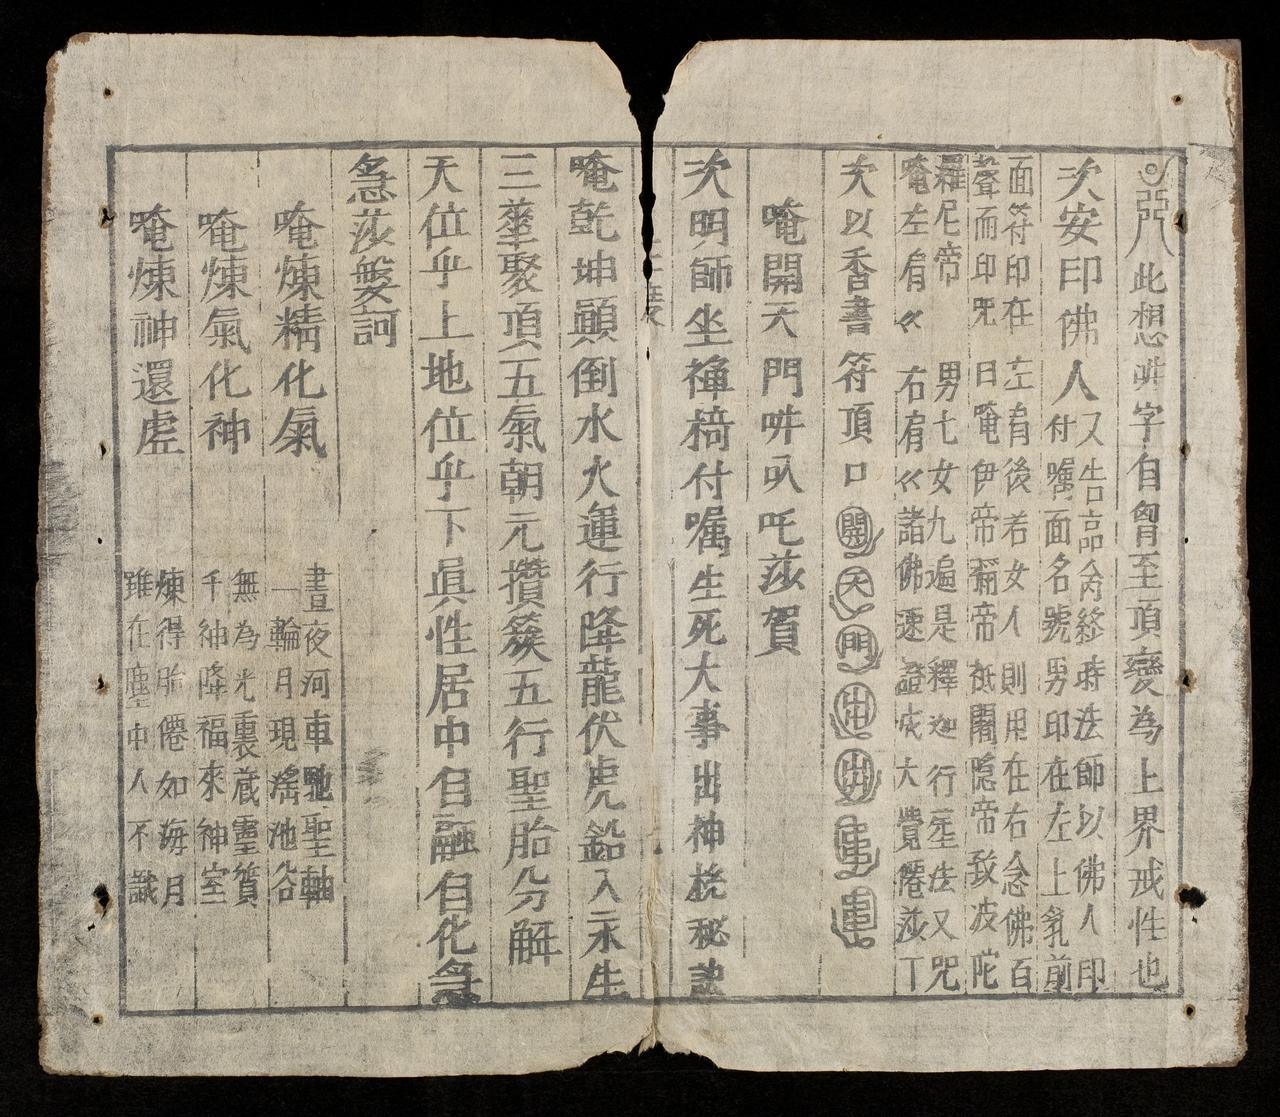 此想吽字自胷至頂變為上界戒性也
次安印佛人
又告品禽終時法師以佛人印
付囑面名號男印在左上乳前
面符印在左肩後若女人則用在右念佛百
聲而印咒曰唵伊帝祢帝祇闍隐帝致波陀
羅尼帝 男七女九遍是釋迦行坙法又咒
唵左肩〻 右肩〻諸佛速證成大覺僊莎丁
次以香書符頂口
開天門
唵開天門吽㕥吒莎賀
次明師坐禅椅付囑生死大事出神桄秘訣
唵乾坤顚倒水火運行降龍伏虎鉛入永生
三華聚頂五氣朝元攢簇五行聖胎分解
天位乎上地位乎下眞性居中自融自化急
急莎娑訶
唵煉精化氣
晝夜河車馳聖軸
一輪月現瑤池谷
唵煉氣化神
無為光裏蔵靈質
千神降福來神室
唵煉神還虛
煉得胎僊如海月
雖在塵中人不識